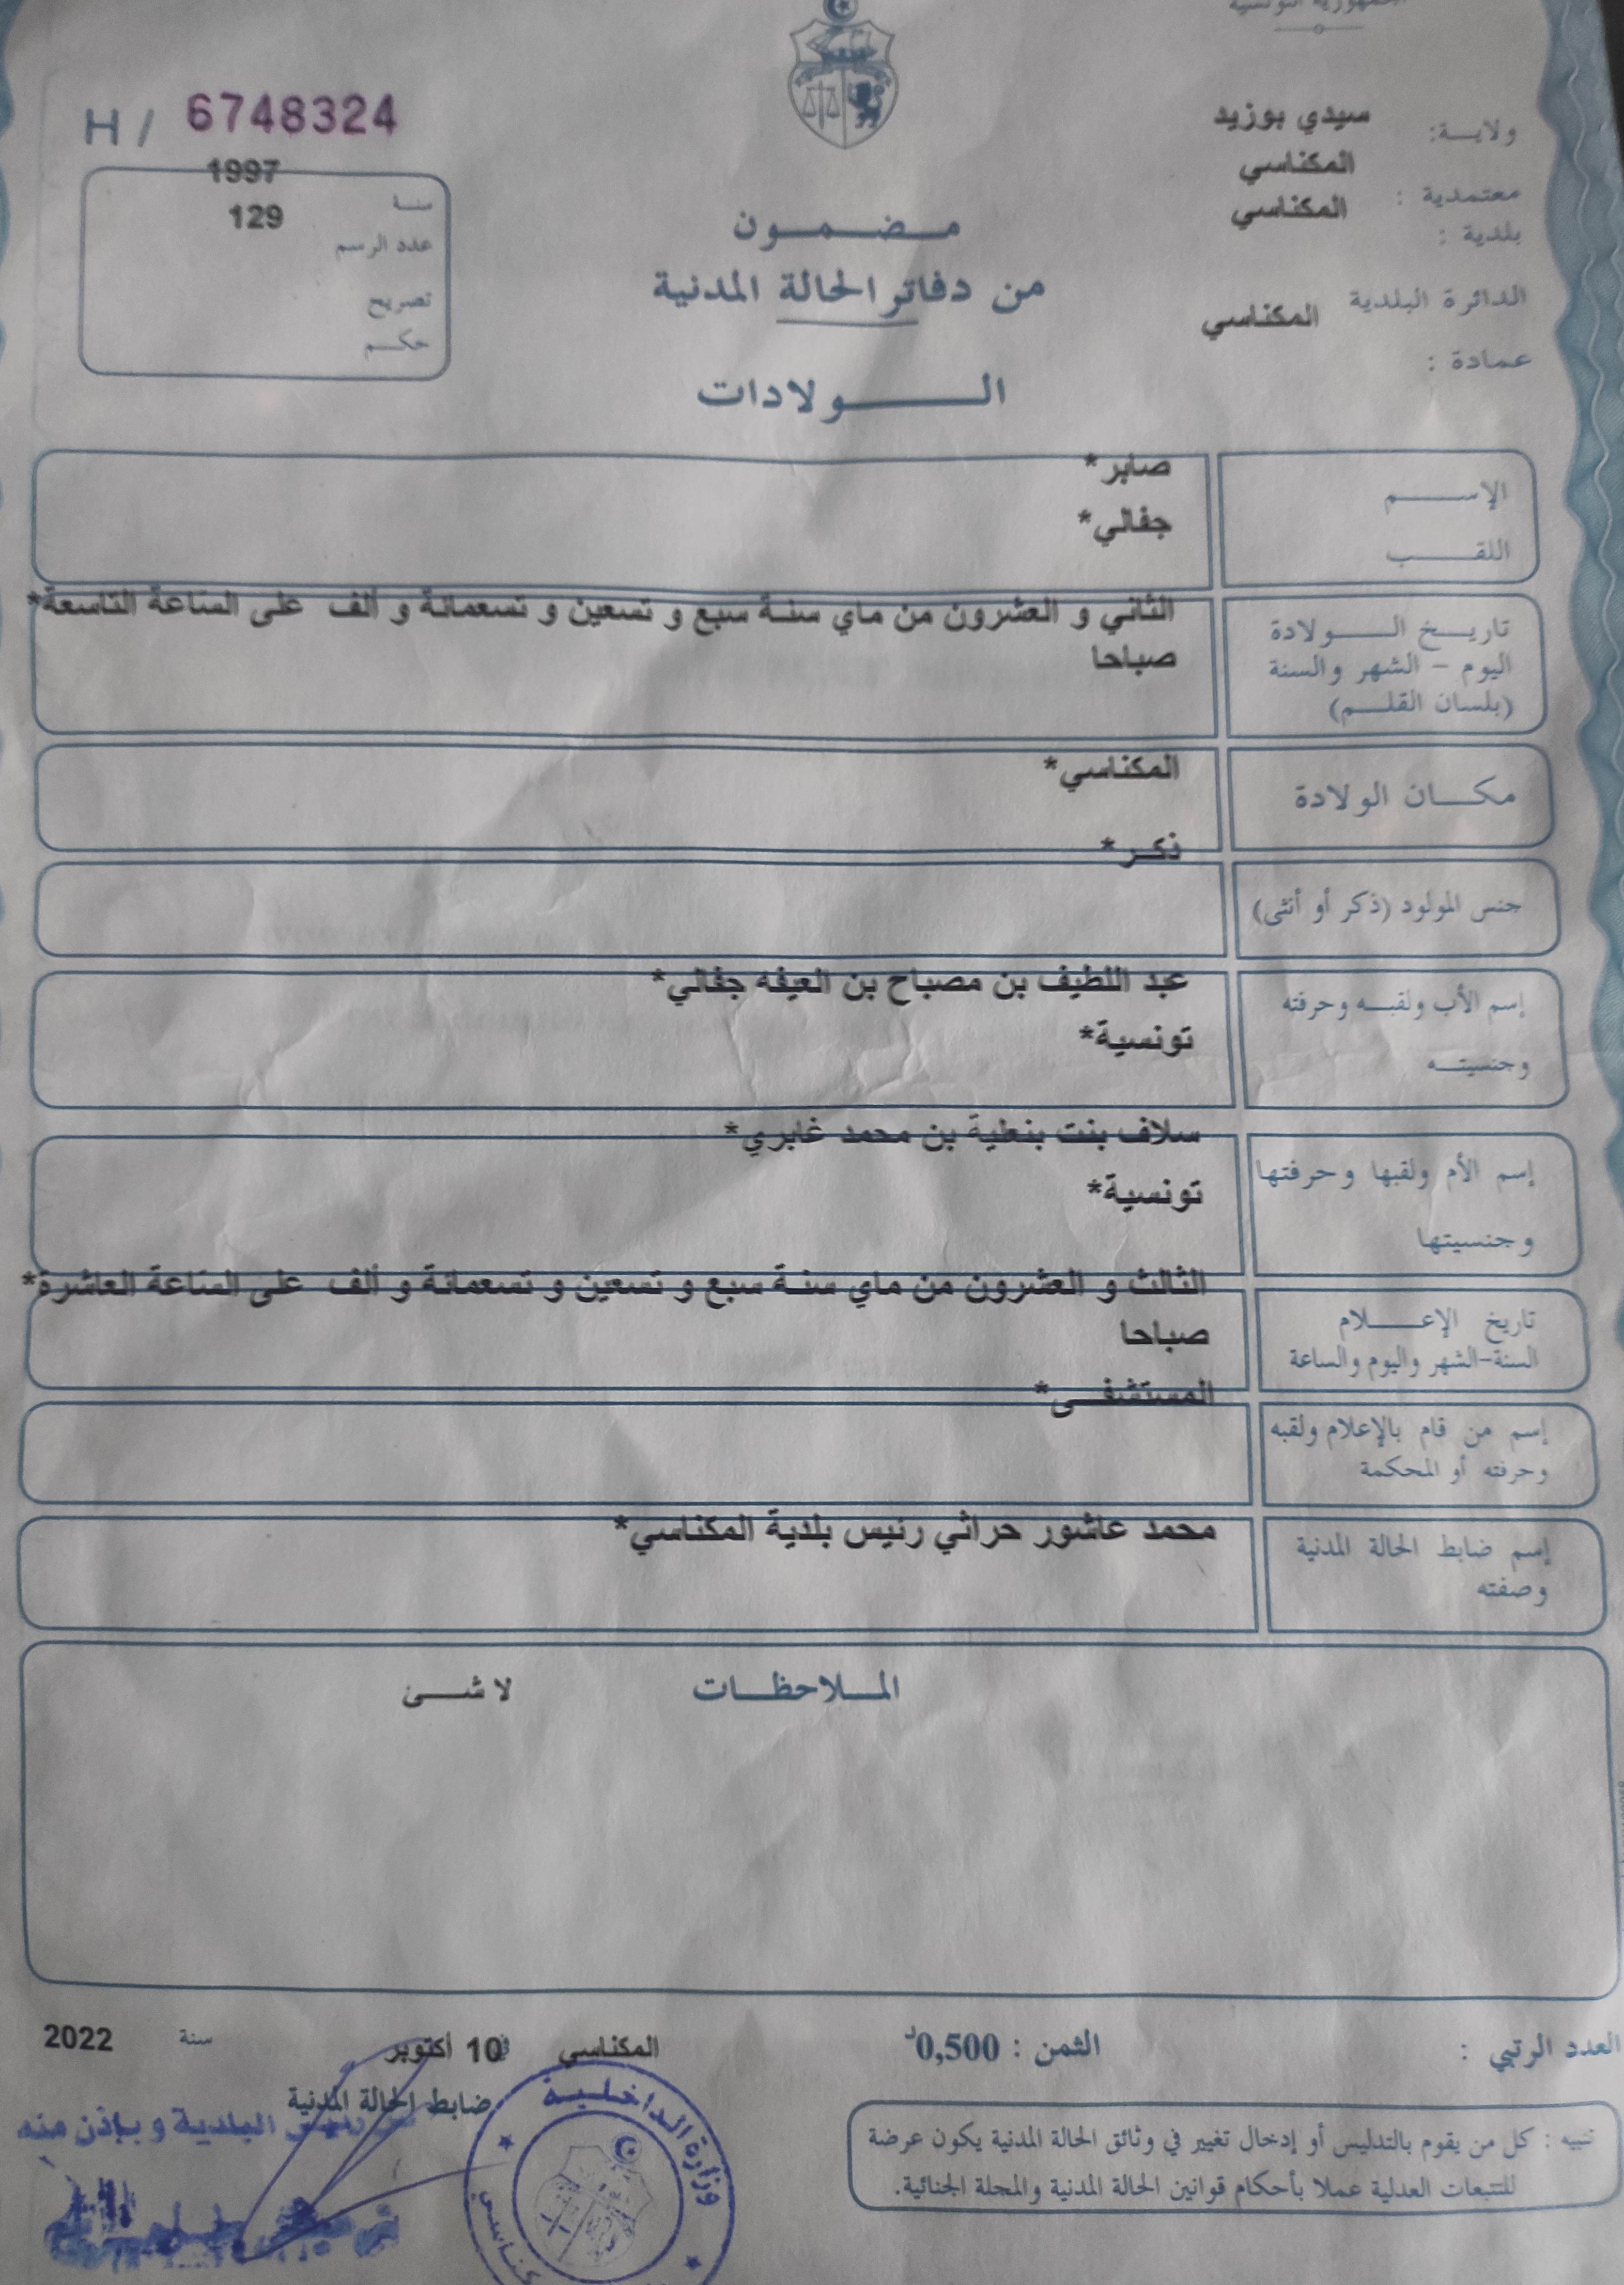 الجمهورية التونسية
ولايـــة: سيدي بوزيد
معتمدية : المكناسي
بلدية : المكناسي
الدائرة البلدية المكناسي
عمادة :
H / 6748324
سنـة 1997
عدد الرسم 129
تصريح
حكــم
مـــضـــمـــون
من دفاتر الحالة المدنية
الـــــولادات
الإســـــم صابر*
اللقـــب جفالي*
تاريـــخ الـــــولادة الثاني و العشرون من ماي سنـة سبع و تسعين و تسعمائة و ألف على الساعة التاسعة*
اليوم – الشهر والسنة صباحا
(بلسان القلــم)
مكـــان الولادة المكناسي*
جنس المولود (ذكر أو أنثى) ذكــر*
إسم الأب ولقبــه وحرفته عبد اللطيف بن مصباح بن العيفه جفالي*
وجنسيتــه تونسية*
إسم الأم ولقبها وحرفتها سلاف بنت بنطية بن محمد غابري*
وجنسيتها تونسية*
تاريخ الإعــــلام الثالث و العشرون من ماي سنـة سبع و تسعين و تسعمائة و ألف على الساعة العاشرة*
السنة-الشهر واليوم والساعة صباحا
إسم من قام بالإعلام ولقبه المستشفــى*
وحرفته أو المحكمة
إسم ضابط الحالة المدنية محمد عاشور حراثي رئيس بلدية المكناسي*
وصفته
المـــلاحظـــات لا شـــئ
العدد الرتبي :
الثمن : 0,500د
المكناسي في 10 أكتوبر سنة 2022
ضابط الحالة المدنية
عن رئيس البلدية و بإذن منه
وزارة الداخلـيـة
تنبيه : كل من يقوم بالتدليس أو إدخال تغيير في وثائق الحالة المدنية يكون عرضة
للتتبعات العدلية عملا بأحكام قوانين الحالة المدنية والمجلة الجنائية.